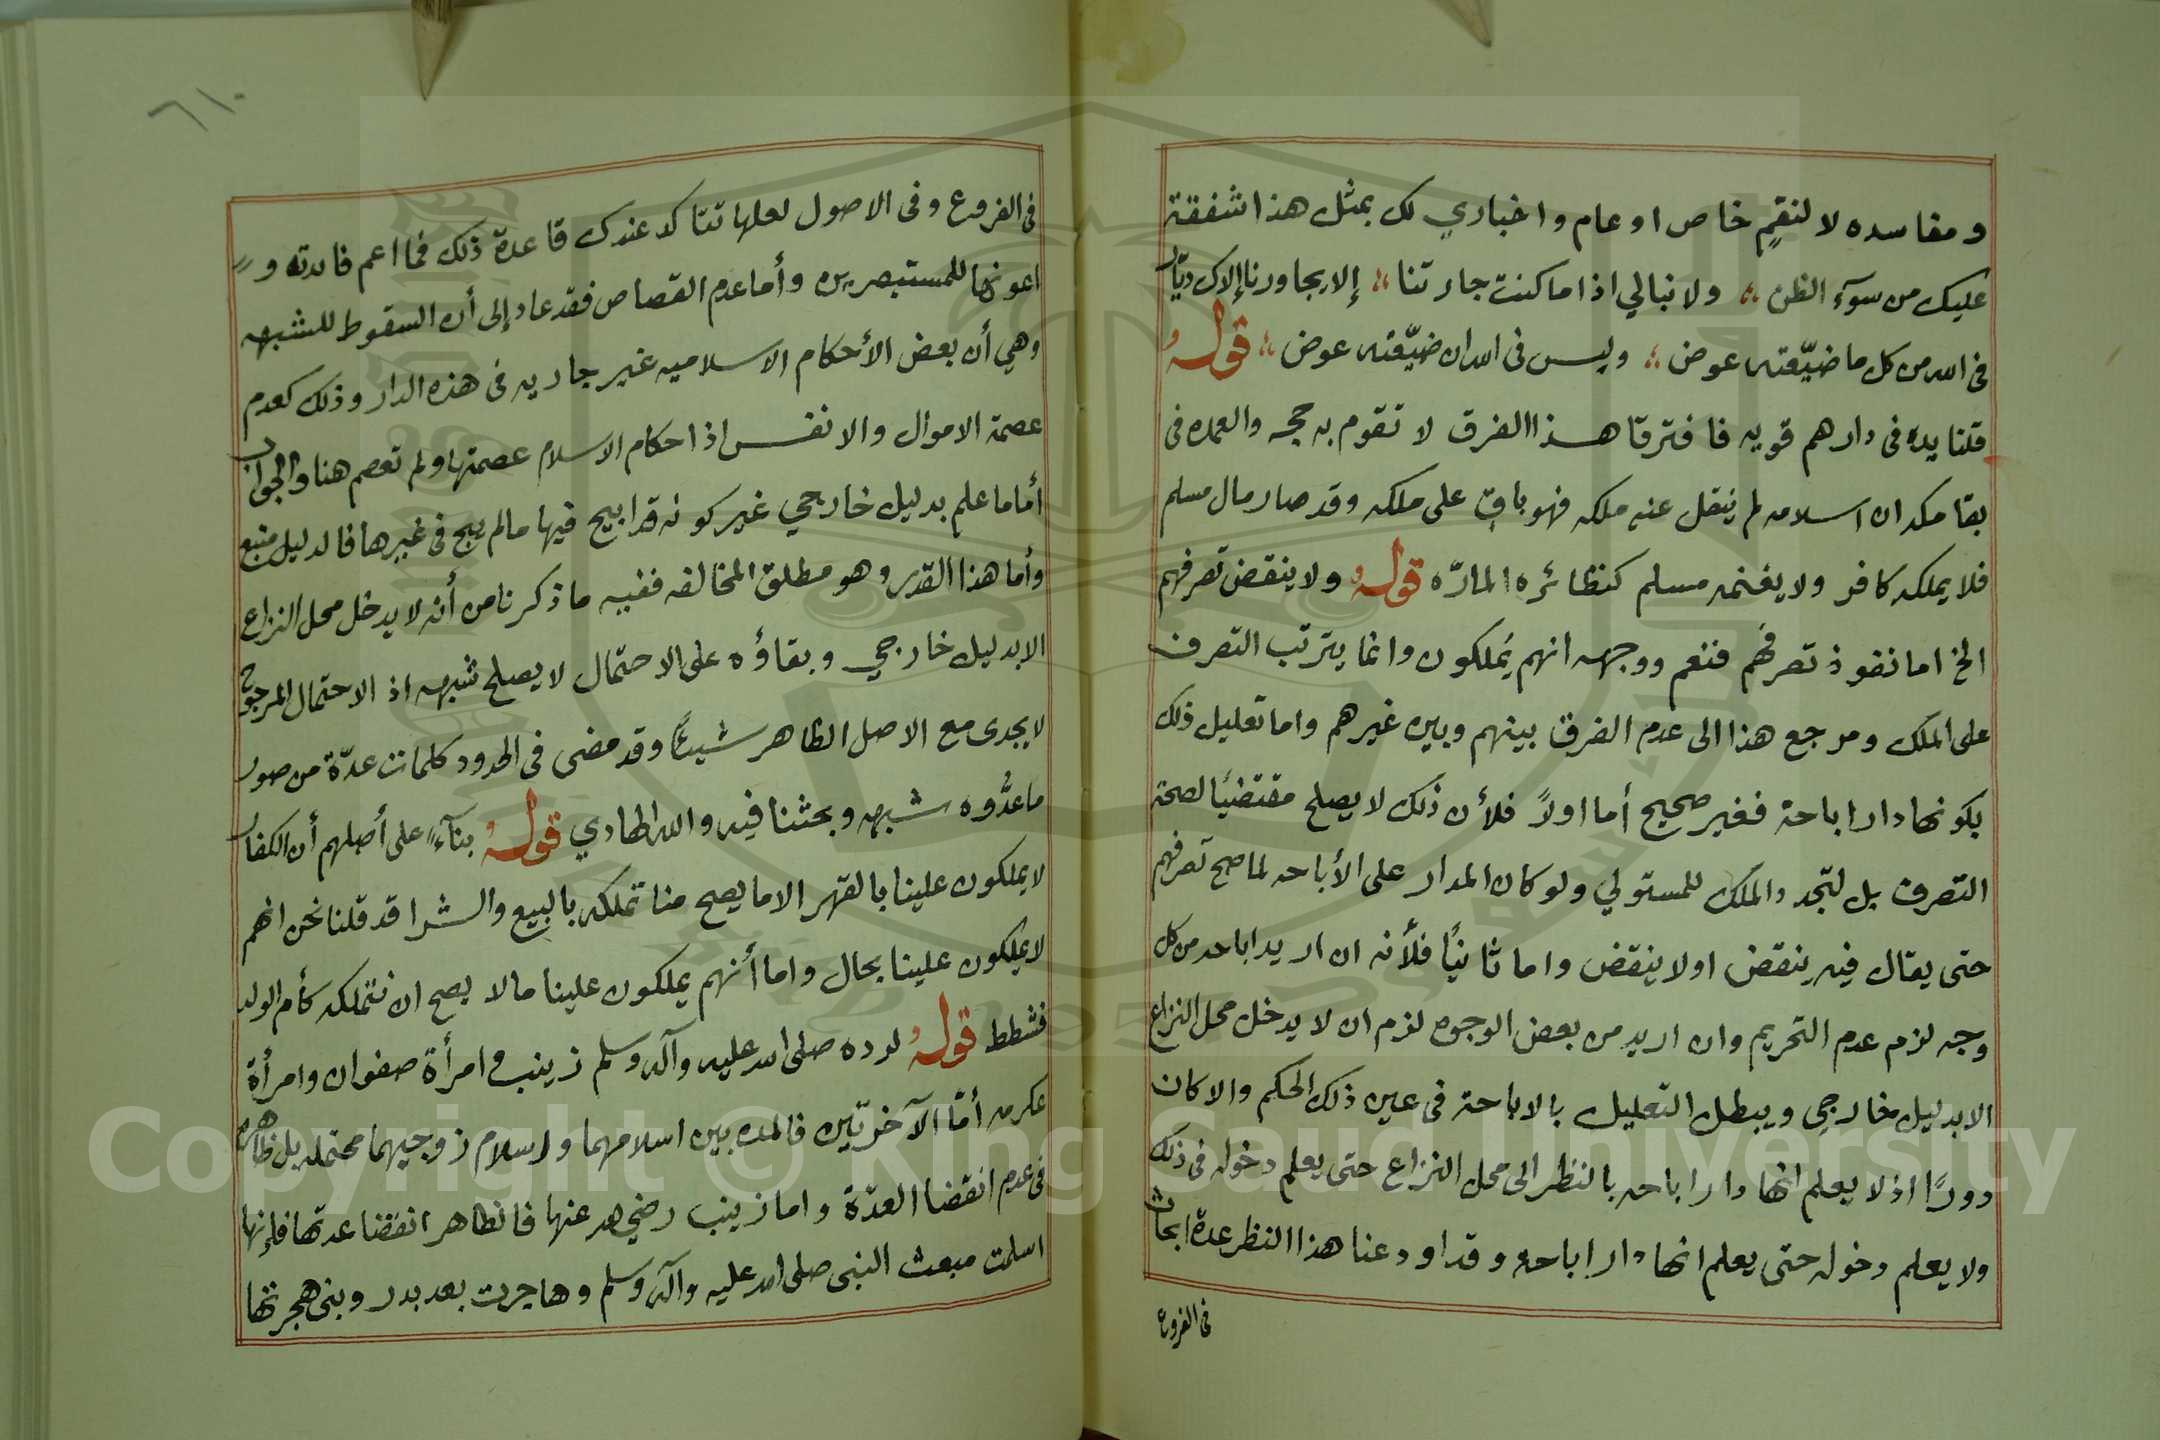 ومفاسده لا لنقم خاص او عام واخباري لك بمثل هذا شفقة
عليك من سوء الظن ؛ ولا نبالي اذا ما كنت جارتنا ؛ إلا يجاورنا إلاك ديّار
في الله من كل ما ضيّعته عوض ؛ وليس في الله ان ضيّعته عوض ؛ قوله
قلنا يده في دارهم قويه فافترقا هذا الفرق لا تقوم به حجه والعمده في
بقا ملكه ان اسلامه لم ينقل عنه ملكه فهو باقٍ على ملكه وقد صار مال مسلم
فلا يملكه كافر ولا يغنمه مسلم كنظائره المارّه قوله ولا ينقض تصرفهم
الخ اما نفوذ تصرفهم فنعم ووجهه انهم يملكون وانما يترتب التصرف
على الملك ومرجع هذا الى عدم الفرق بينهم وبين غيرهم واما تعليل ذلك
بكونها دار اباحة فغير صحيح أما اولاً فلأن ذلك لا يصلح مقتضيًا لصحة
التصرف بل لتجدد الملك للمستولي ولو كان المدار على الأباحه لما صح تصرفهم
حتى يقال فيه ينقض او لا ينقض واما ثانيًا فلأنه ان اريد اباحه من كل
وجه لزم عدم التحريم وان اريد من بعض الوجوه لزم ان لا يدخل محل النزاع
الا بدليل خارجي ويبطل التعليل بالاباحة في عين ذلك الحكم والا كان
دورًا اذ لا يعلم انها دار اباحه بالنظر الى محل النزاع حتى يعلم دخوله في ذلك
ولا يعلم دخوله حتى يعلم انها دار اباحه وقد اودعنا هذا النظر عدة ابحاث
في الفروع
٦١٠
في الفروع وفي الاصول لعلها تتاكد عندك قاعدة ذلك فما اعم فائدته و
اعونها للمستبصرين وأما عدم القصاص فقد عاد إلى أن السقوط للشبهه
وهي أن بعض الأحكام الاسلاميه غير جاريه في هذه الدار وذلك كعدم
عصمة الاموال والانفس اذ احكام الاسلام عصمتها ولم تعصم هنا والجواب
أما ما علم بدليل خارجي غير كونه قد ابيح فيها مالم يبح في غيرها فالدليل متبع
وأما هذا القدر وهو مطلق المخالفه ففيه ما ذكرنا من أنه لا يدخل محل النزاع
الا بدليل خارجي وبقاؤه على الاحتمال لا يصلح شبهه اذ الاحتمال المرجوح
لا يجدى مع الاصل الظاهر شيئًا وقد مضى في الحدود كلمات عدّة من صور
ما عدُّوه شبهه وبحثنا فيه والله الهادي قوله بنآءً على أصلهم أن الكفار
لا يملكون علينا بالقهر الا ما يصح منا تملكه بالبيع والشرا قد قلنا نحن انهم
لا يملكون علينا بحال واما أنهم يملكون علينا مالا يصح ان نتملكه كأم الولد
فشطط قوله لرده صلى الله عليه وآله وسلم زينب وامرأة صفوان وامرأة
عكرمه أمّا الآخرتين فالمده بين اسلامهما واسلام زوجيهما محتمله بل ظاهره
في عدم انقضا العدّة واما زينب رضي الله عنها فالظاهر انقضا عدتها فإنها
اسلمت مبعث النبي صلى الله عليه وآله وسلم وهاجرت بعد بدر وبني هجرتها
Copyright © King Saud University